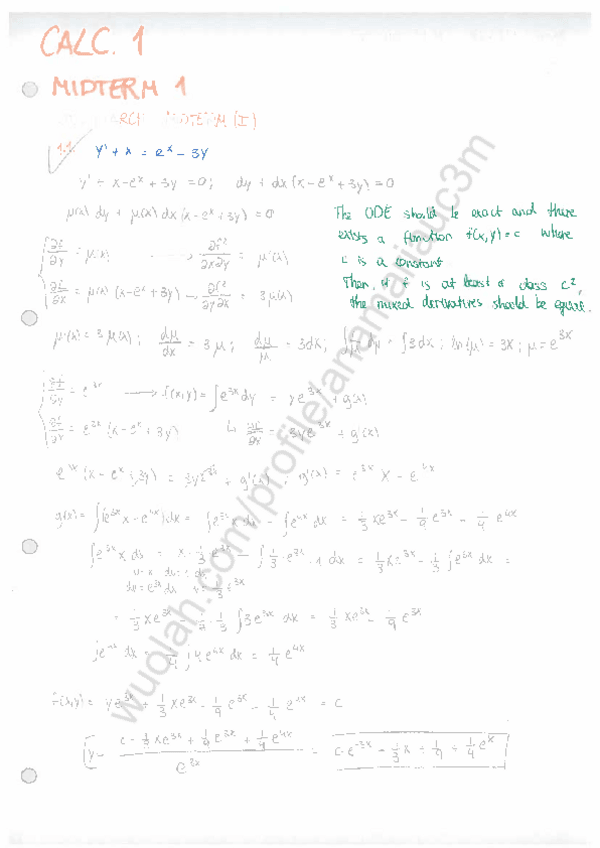 CALC. 1
MIDTERM 1
MIDTERM (I)
1.1. y' + x = e^x - 3y
y' + x - e^x + 3y = 0; dy + dx (x - e^x + 3y) = 0
μ(x) dy + μ(x) dx (x - e^x + 3y) = 0
The ODE should be exact and there
exists a function f(x,y) = c where
c is a constant
Then, if f is at least of class C²,
the mixed derivatives should be equal.
∂f/∂y = μ(x) → ∂f²/∂x∂y = μ'(x)
∂f/∂x = μ(x) (x - e^x + 3y) → ∂f²/∂y∂x = 3μ(x)
μ'(x) = 3μ(x); dμ/dx = 3μ; dμ/μ = 3dx; ∫ 1/μ dμ = ∫ 3dx; ln(μ) = 3x; μ = e^3x
∂f/∂y = e^3x → f(x,y) = ∫ e^3x dy = ye^3x + g(x)
∂f/∂x = e^3x (x - e^x + 3y) ↳ ∂f/∂x = 3ye^3x + g'(x)
e^3x (x - e^x + 3y) = 3ye^3x + g'(x); g'(x) = e^3x x - e^4x
g(x) = ∫ (e^3x x - e^4x) dx = ∫ e^3x x dx - ∫ e^4x dx = 1/3 xe^3x - 1/9 e^3x - 1/4 e^4x
∫ e^3x x dx = x · 1/3 e^3x - ∫ 1/3 · e^3x · 1 dx = 1/3 xe^3x - 1/3 ∫ e^3x dx =
u = x du = 1 dx
dv = e^3x dx v = 1/3 e^3x
= 1/3 xe^3x - 1/3 · 1/3 ∫ 3e^3x dx = 1/3 xe^3x - 1/9 e^3x
∫ e^4x dx = 1/4 ∫ 4e^4x dx = 1/4 e^4x
f(x,y) = ye^3x + 1/3 xe^3x - 1/9 e^3x - 1/4 e^4x = c
y = (c - 1/3 xe^3x + 1/9 e^3x + 1/4 e^4x) / e^3x = c·e^-3x - 1/3 x + 1/9 + 1/4 e^x
wuolah.com/profile/anamariauc3m